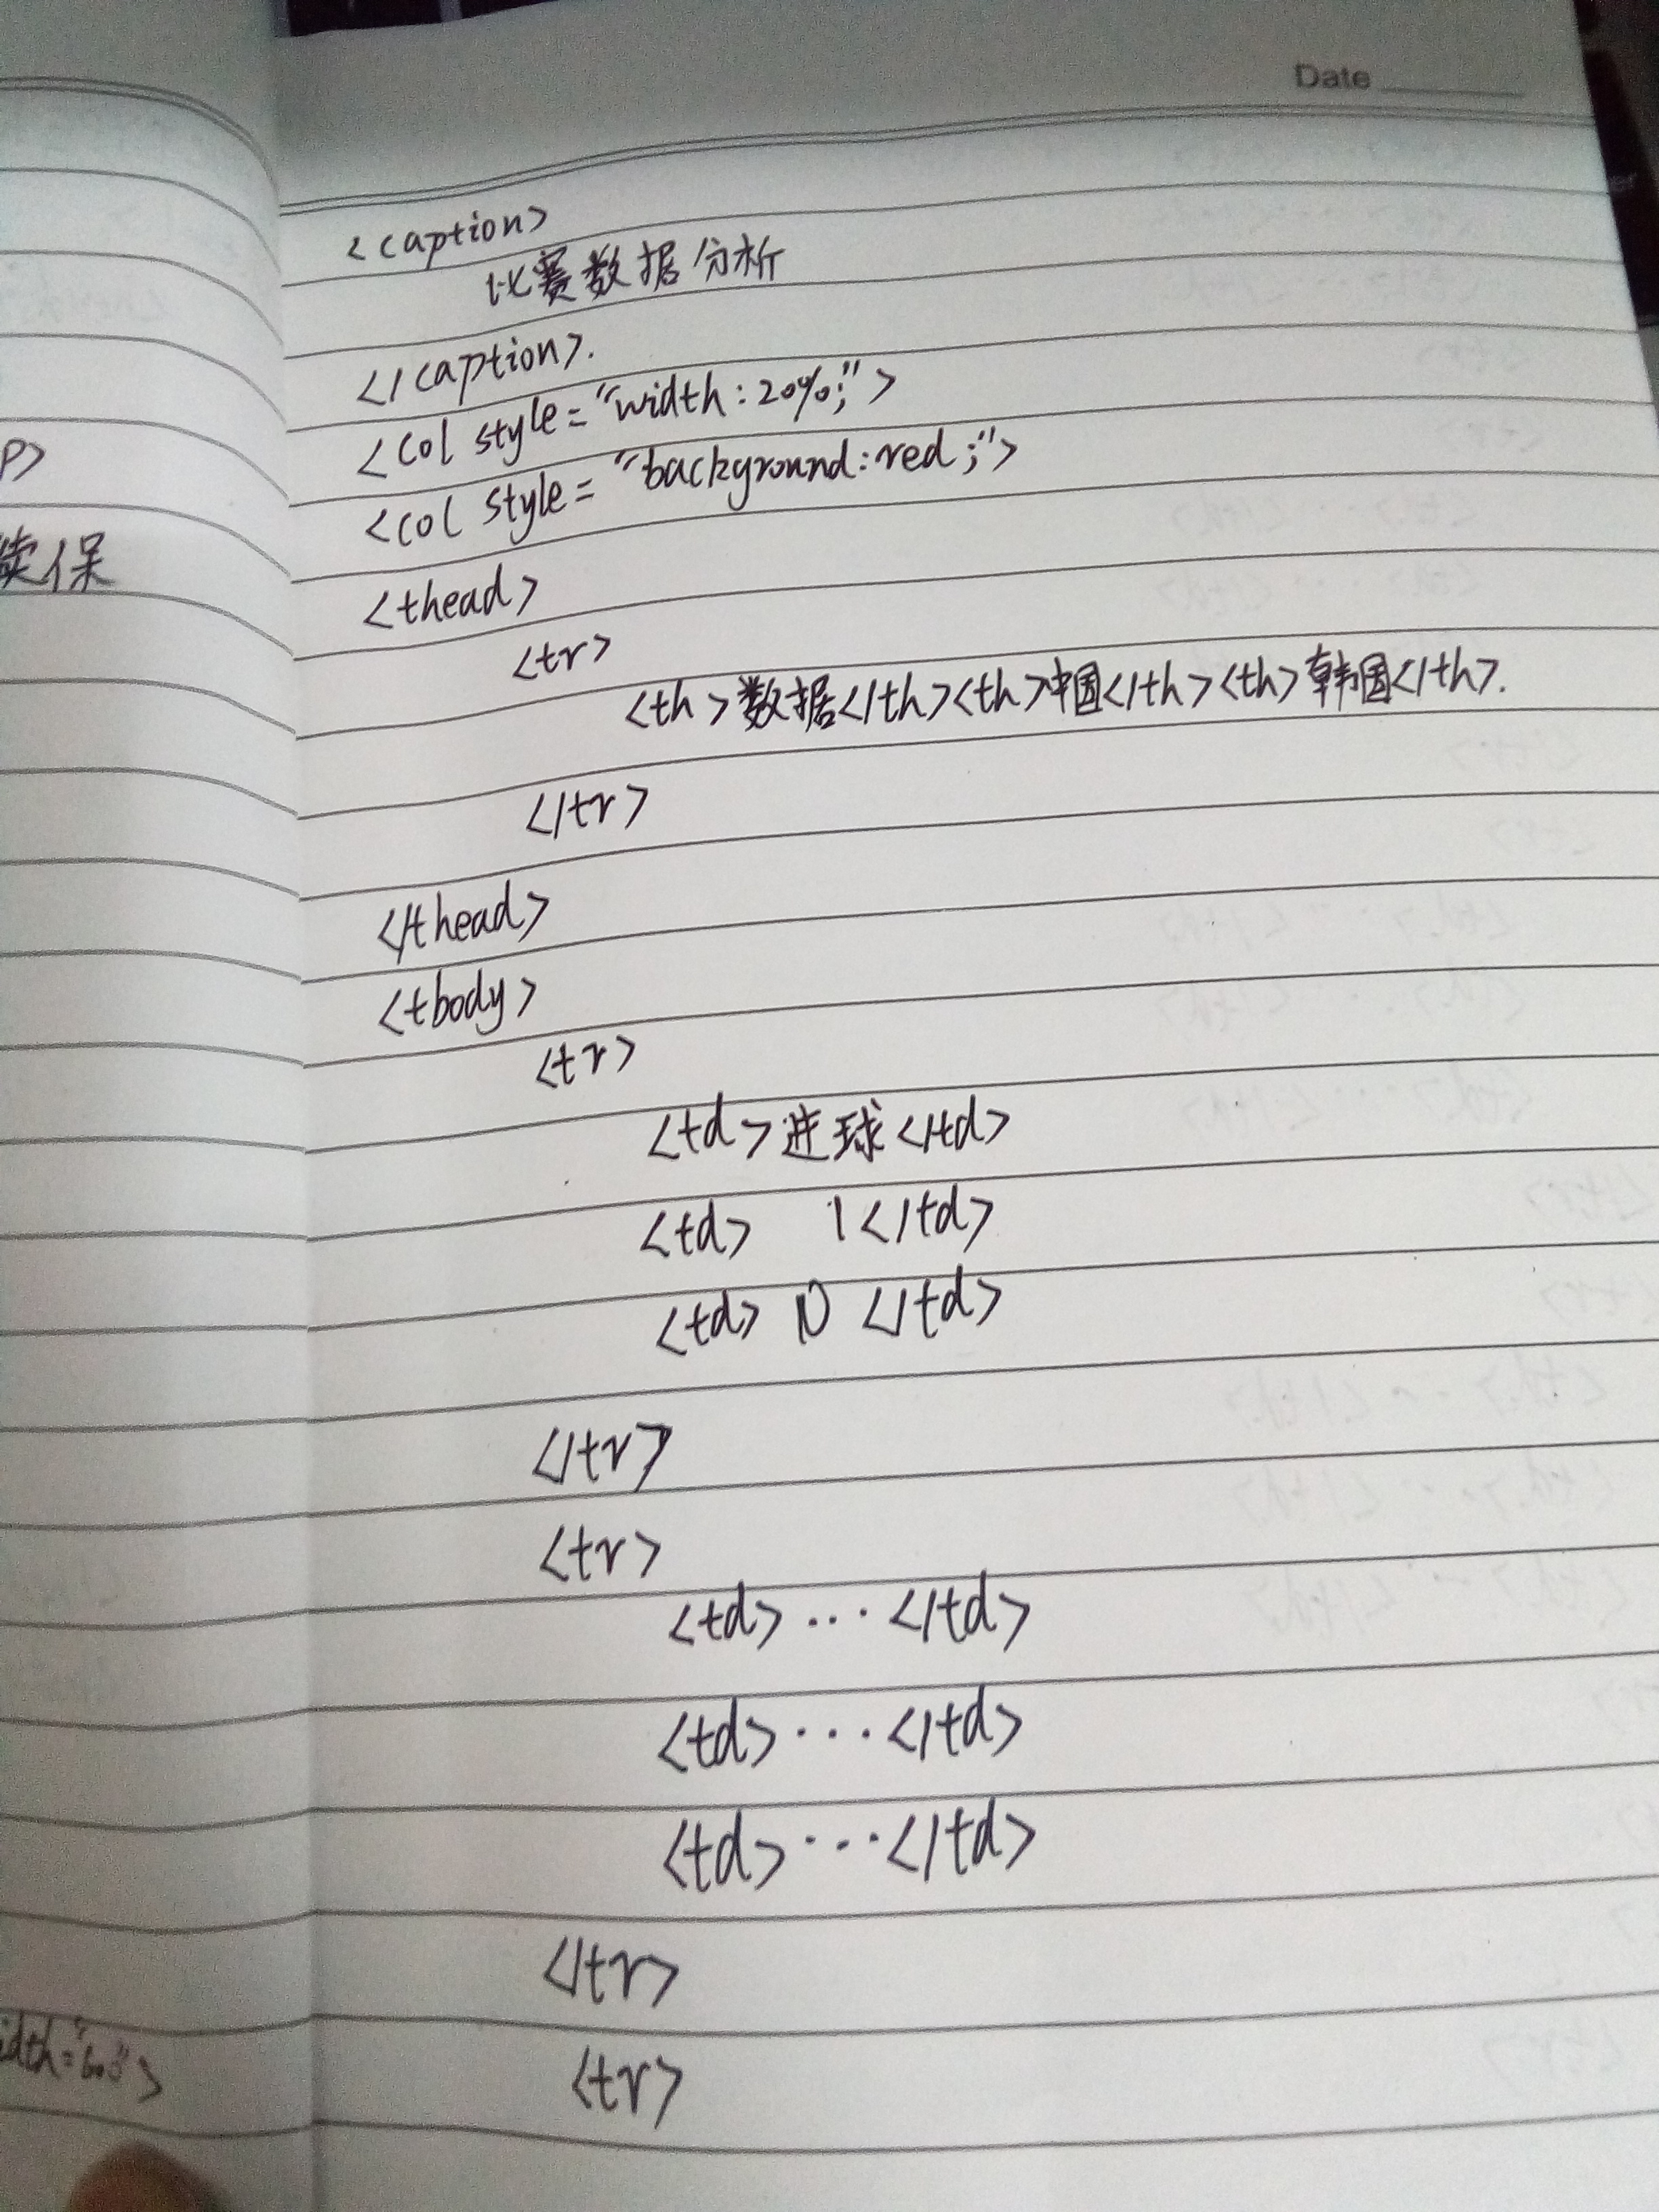 Date
p>
续保
idth="600">
<caption>
比赛数据分析
</caption>.
<col style="width:20%;">
<col style="background:red;">
<thead>
<tr>
<th>数据</th><th>中国</th><th>韩国</th>.
</tr>
</thead>
<tbody>
<tr>
<td>进球</td>
<td> 1</td>
<td> 0 </td>
</tr>
<tr>
<td>...</td>
<td>...</td>
<td>...</td>
</tr>
<tr>